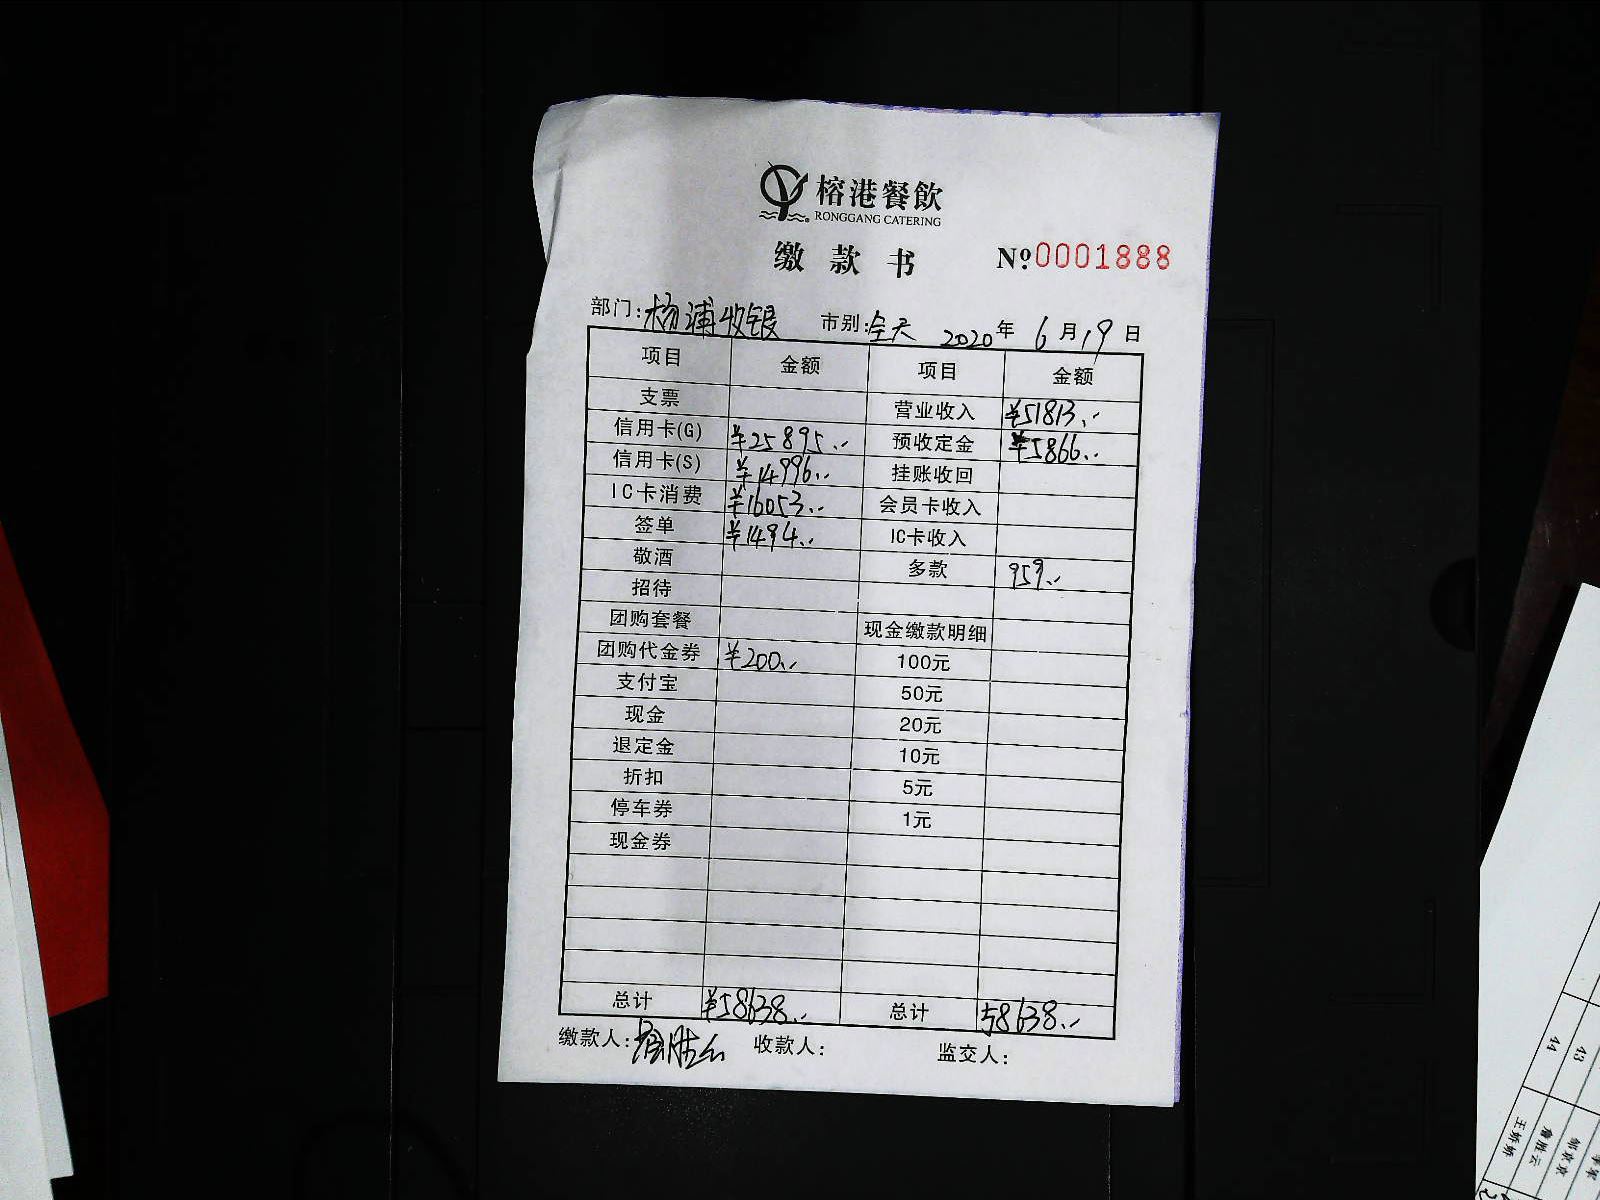 榕港餐飲
RONGGANG CATERING
缴款书 Nº:0001888
部门:杨浦收银 市别:全天 2020年6月19日
项目 金额 项目 金额
支票 营业收入 ¥51813.-
信用卡(G) ¥25895.- 预收定金 ¥5866.-
信用卡(S) ¥14996.- 挂账收回
IC卡消费 ¥16053.- 会员卡收入
签单 ¥1494.- IC卡收入
敬酒 多款 959.-
招待
团购套餐 现金缴款明细
团购代金券 ¥200.- 100元
支付宝 50元
现金 20元
退定金 10元
折扣 5元
停车券 1元
现金券
总计 ¥58638.- 总计 58638.-
缴款人:詹胜云 收款人: 监交人:
44 43
王娇娇 詹胜云 邹京京